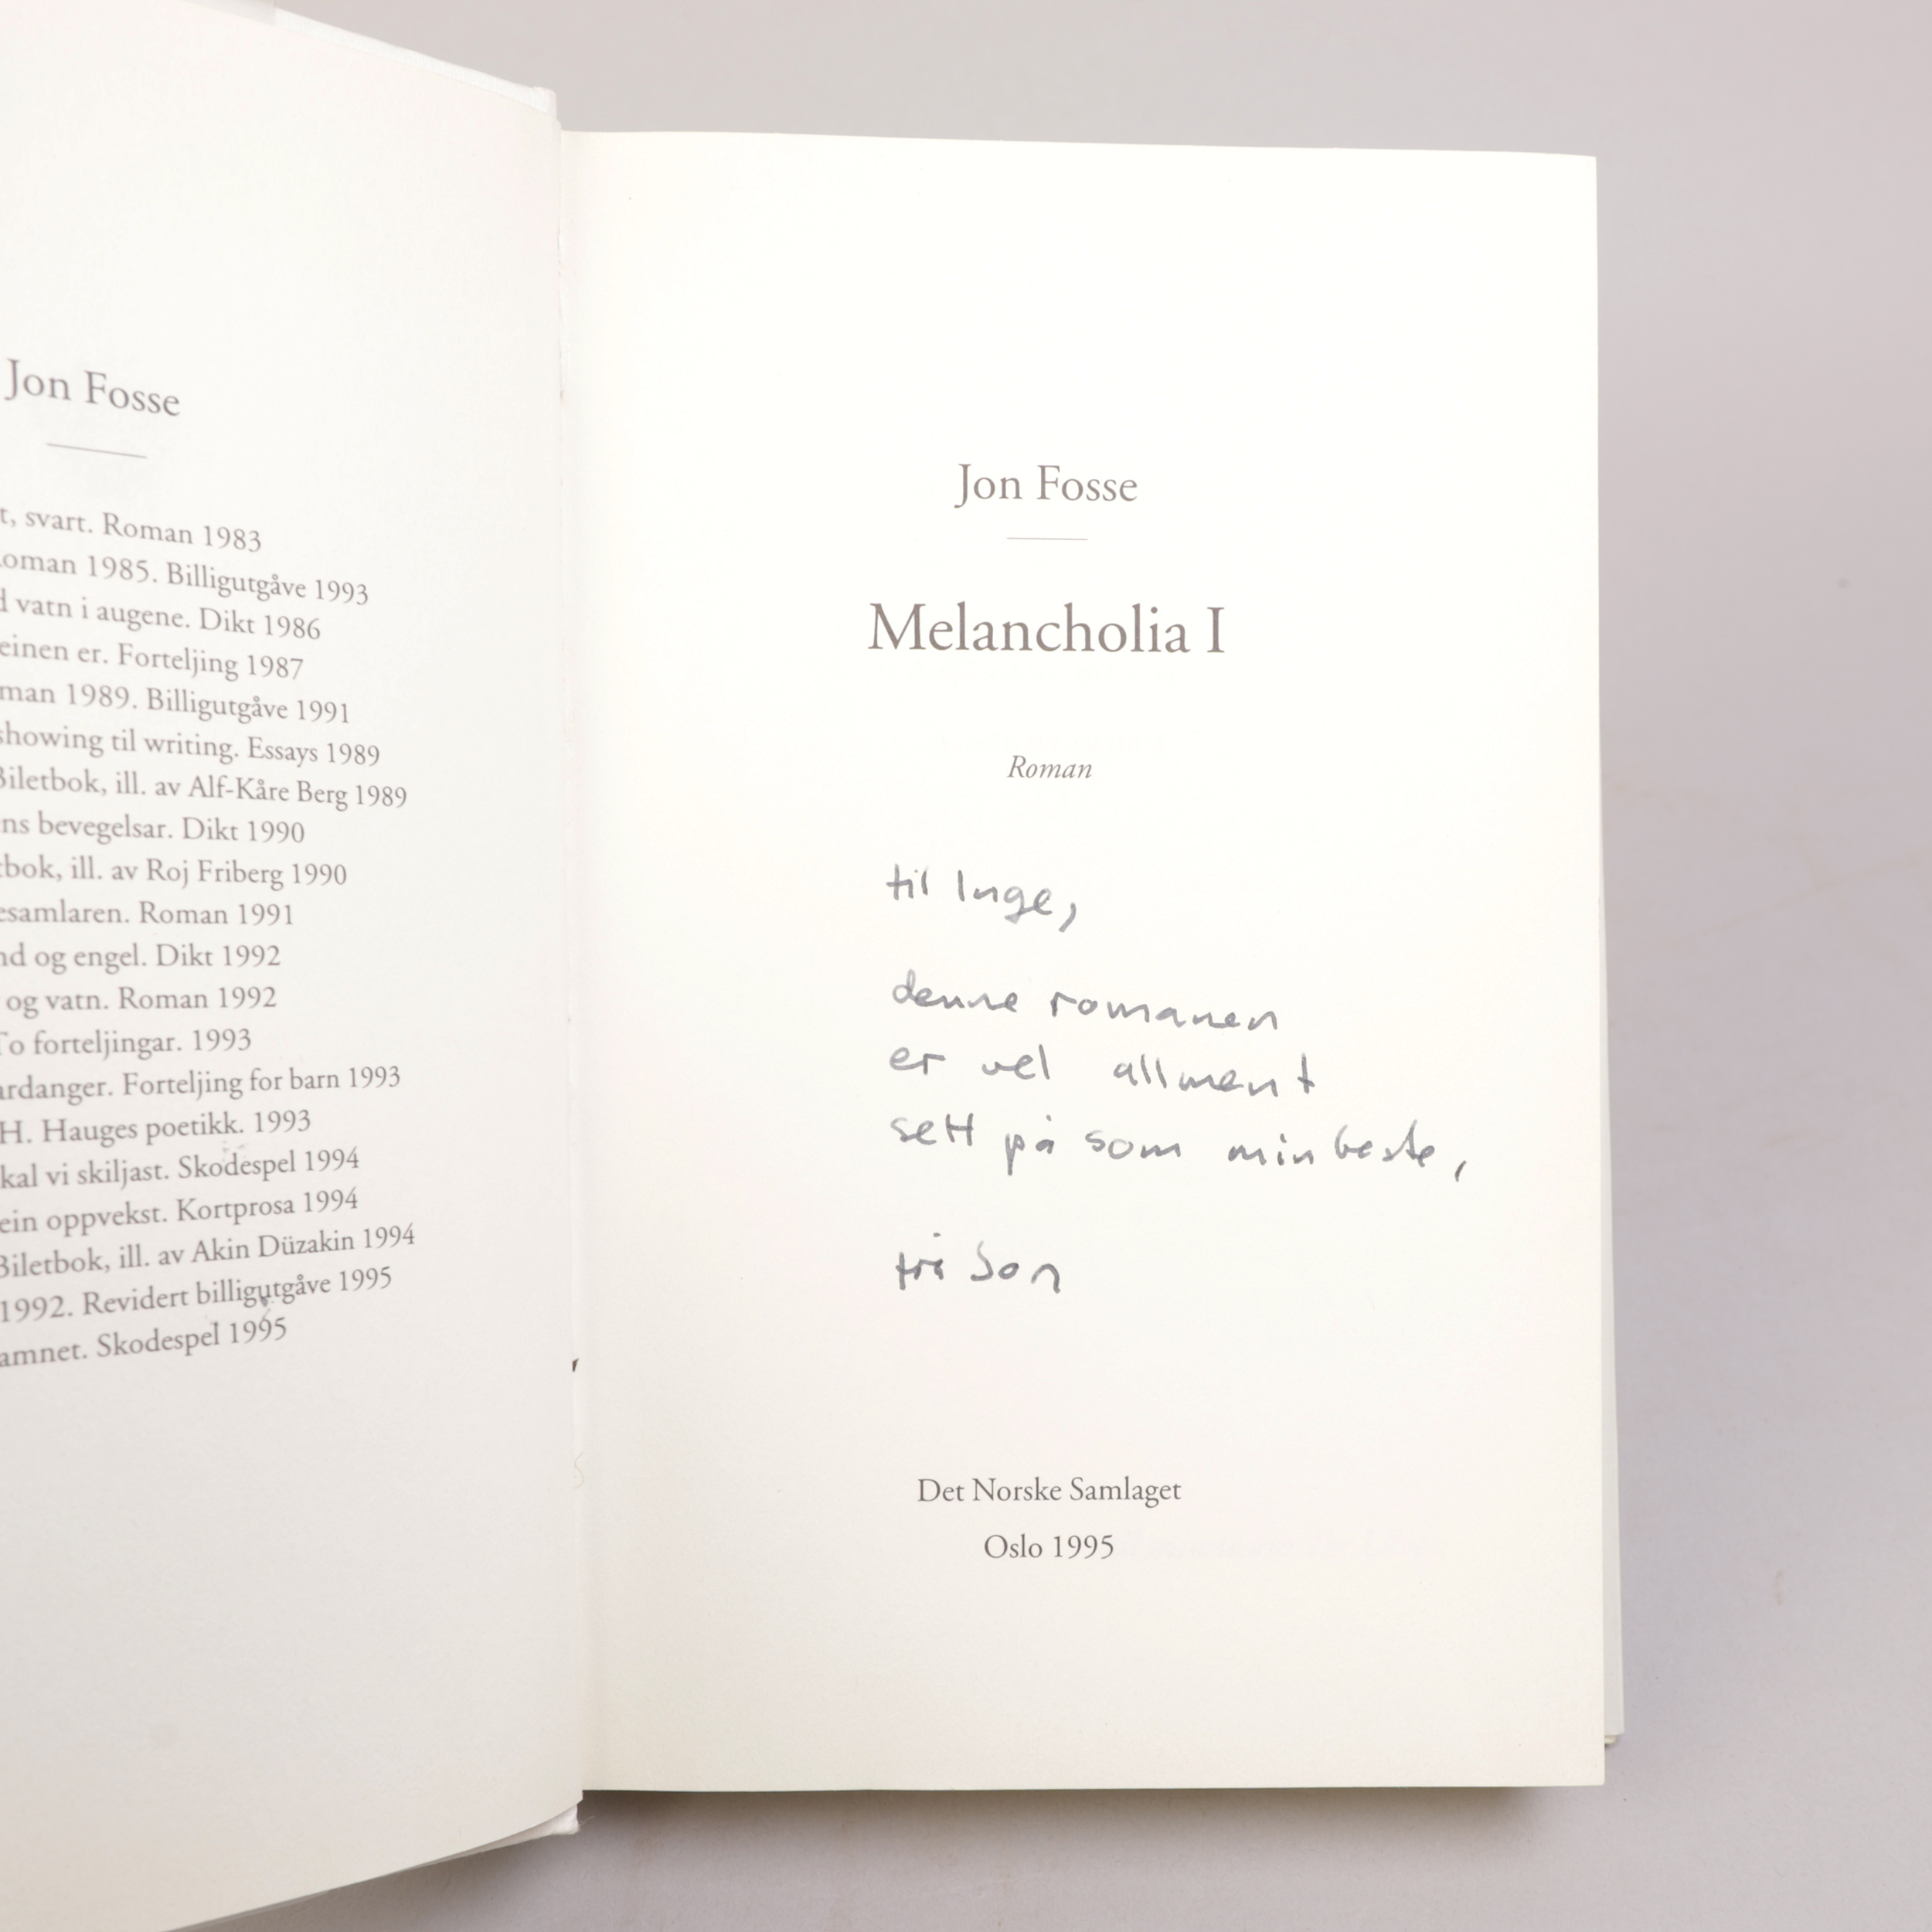 Jon Fosse
t, svart. Roman 1983
oman 1985. Billigutgåve 1993
d vatn i augene. Dikt 1986
einen er. Forteljing 1987
man 1989. Billigutgåve 1991
showing til writing. Essays 1989
Biletbok, ill. av Alf-Kåre Berg 1989
ns bevegelsar. Dikt 1990
tbok, ill. av Roj Friberg 1990
esamlaren. Roman 1991
nd og engel. Dikt 1992
og vatn. Roman 1992
To forteljingar. 1993
ardanger. Forteljing for barn 1993
H. Hauges poetikk. 1993
kal vi skiljast. Skodespel 1994
ein oppvekst. Kortprosa 1994
Biletbok, ill. av Akin Düzakin 1994
1992. Revidert billigutgåve 1995
amnet. Skodespel 1995
Jon Fosse
Melancholia I
Roman
til Inge,
denne romanen
er vel allment
sett på som min beste,
frå Jon
Det Norske Samlaget
Oslo 1995